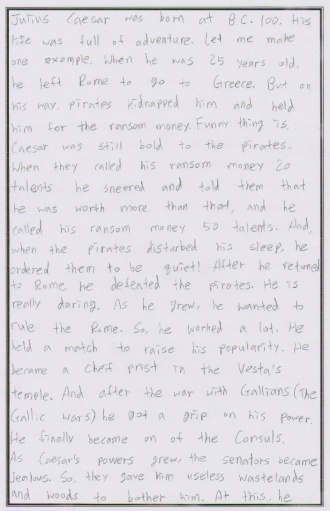 Julius Caesar was born at B.C. 100. His
life was full of adventure. Let me make
one example. When he was 25 years old.
he left Rome to go to Greece. But on
his way, pirates kidnapped him and held
him for the ransom money. Funny thing is,
Caesar was still bold to the pirates.
When they called his ransom money 20
talents, he sneered and told them that
he was worth more than that, and he
called his ransom money 50 talents. And,
when the pirates disturbed his sleep, he
ordered them to be quiet! After he retuned
to Rome he defeated the pirates. He is
really daring. As he grew, he wanted to
rule the Rome. So, he worked a lot. He
held a match to raise his popularity. He
became a cheif prist in the Vesta's
temple. And after the war with Gallians (The
Gallic wars) he got a grip on his power.
He finally became on of the Consuls.
As Caesar's powers grew, the senators became
jealous. So, they gave him useless wastelands
and woods to bother him. At this, he